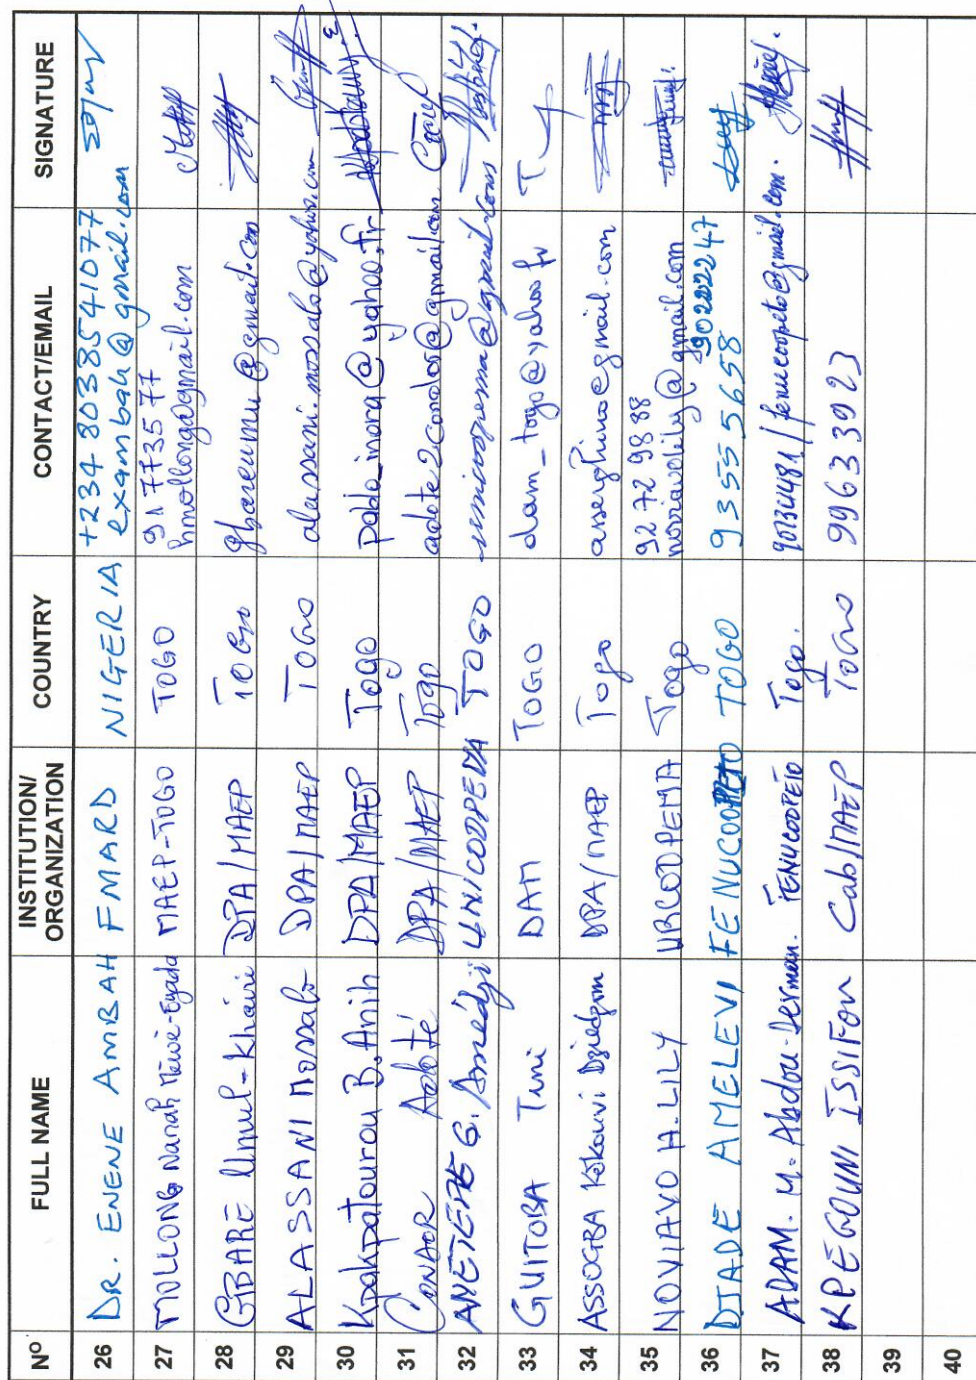 N° FULL NAME INSTITUTION/ ORGANIZATION COUNTRY CONTACT/EMAIL SIGNATURE
26 DR. ENENE AMBAH FMARD NIGERIA +234 8038541077
exambah@gmail.com
27 MOLLONG Nanah MAEP-TOGO TOGO 91773577
hmollong@gmail.com
28 GBARE Umul-Khairi DPA/MAEP TOGO
29 ALASSANI Mossalo DPA/MAEP TOGO alassani.mossalo@yahoo.com
30 Kpakpatourou B. Anih DPA/MAEP Togo pablo_inora@yahoo.fr
31 CONDOR Adoté DPA/MAEP Togo adote2condor@gmail.com
32 G. Amedji UNICOOPEMA TOGO unicoopema@gmail.com
33 GUITOBA Tuni DAM TOGO dam_togo@yahoo.fr
34 ASSOGBA Kokouvi DPA/MAEP Togo
35 NOVIAVO H. LILY URCOOPEMA Togo 92729888
noviavolily@gmail.com
36 DJADE AMELEVI FENUCOOPETO TOGO 93555658 90222247
37 ADAM. M. Abdou-Derman. FENUCOOPETO Togo. / fenucoopeto@gmail.com.
38 KPEGOUNI ISSIFOU Cab/MAEP TOGO 99633923
39
40